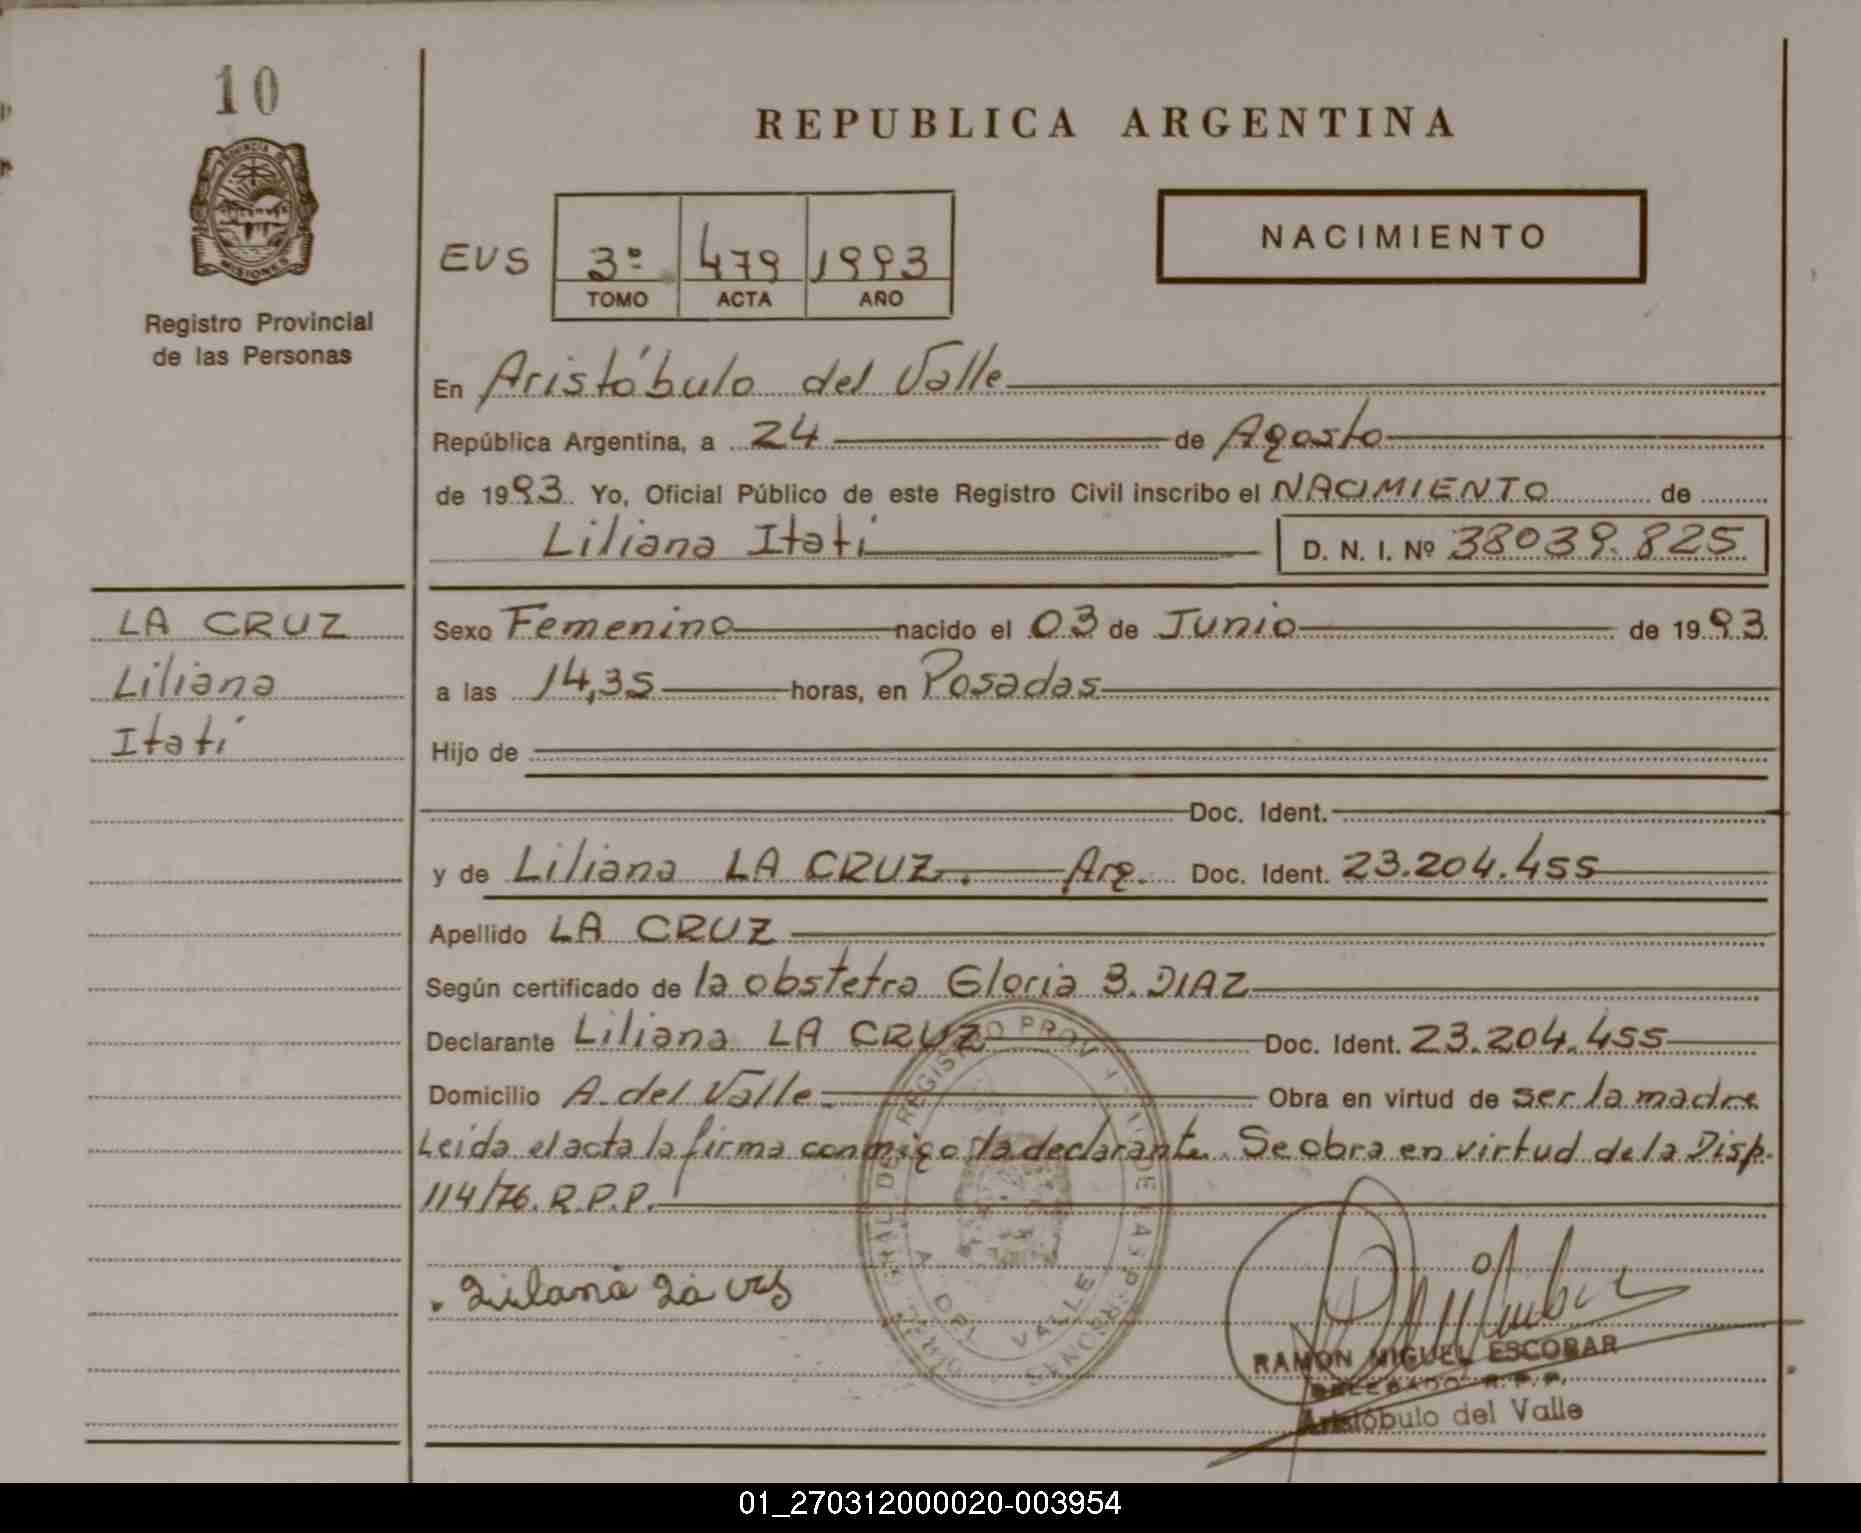 10
PROVINCIA DE
MISIONES
Registro Provincial
de las Personas
REPUBLICA ARGENTINA
NACIMIENTO
EUS 3º 479 1993
TOMO ACTA AÑO
En Aristóbulo del Valle
República Argentina, a 24 de Agosto
de 1993 Yo, Oficial Público de este Registro Civil inscribo el NACIMIENTO de
Liliana Itatí D. N. I. Nº 38039.825
LA CRUZ
Liliana
Itatí
Sexo Femenino nacido el 03 de Junio de 1993
a las 14,35 horas, en Posadas
Hijo de
Doc. Ident.
y de Liliana LA CRUZ. Arg. Doc. Ident. 23.204.455
Apellido LA CRUZ
Según certificado de la obstetra Gloria B. DIAZ
Declarante Liliana LA CRUZ Doc. Ident. 23.204.455
Domicilio A. del Valle. Obra en virtud de ser la madre
Leída el acta la firma conmigo la declarante. Se obra en virtud de la Disp.
114/76. R.P.P.
A. DEL VALLE
RAMON MIGUEL ESCOBAR
DELEGADO R.P.P.
Aristóbulo del Valle
01_270312000020-003954